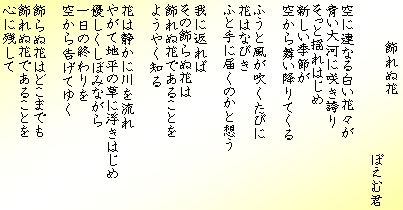 飾れぬ花
ぽえむ君
空に連なる白い花々が
青い大河に咲き誇り
そっと揺れはじめ
新しい季節が
空から舞い降りてくる
ふうと風が吹くたびに
花はなびき
ふと手に届くのかと想う
我に返れば
その飾らぬ花は
飾れぬ花であることを
ようやく知る
花は静かに川を流れ
やがて地平の草に浮きはじめ
優しくしぼみながら
一日の終わりを
空から告げてゆく
飾らぬ花はどこまでも
飾れぬ花であることを
心に残して